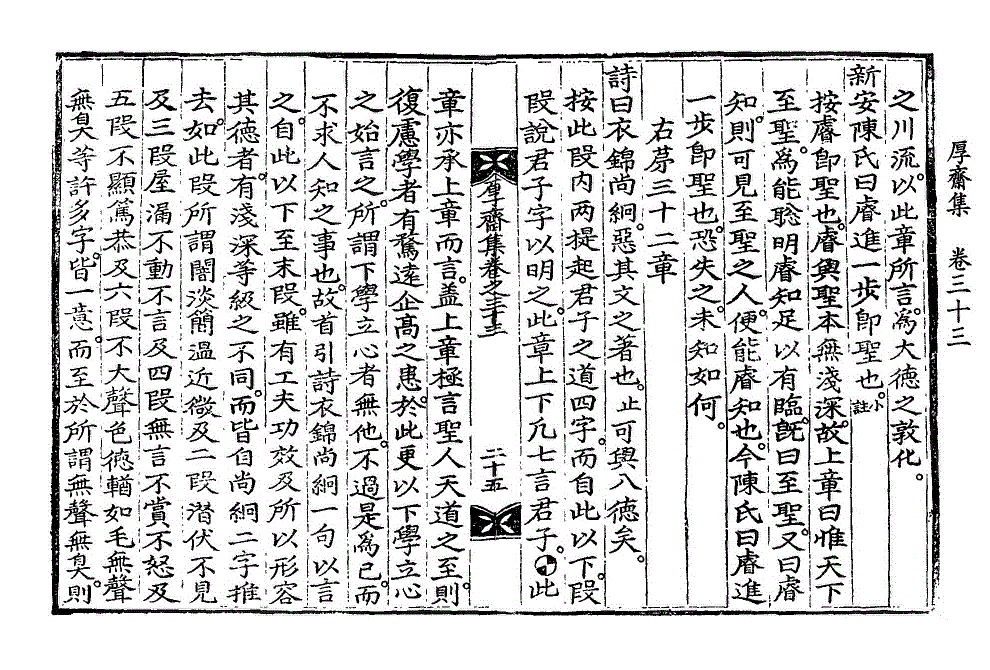 厚齋集　卷三十三
之川流。以此章所言。爲大德之敦化。
新安陳氏曰睿進一步卽聖也。小註
按睿卽聖也。睿與聖本無淺深。故上章曰惟天下
至聖。爲能聡明睿知足以有臨。旣曰至聖。又曰睿
知。則可見至聖之人。便能睿知也。今陳氏曰睿進
一步卽聖也。恐失之。未知如何。
右苐三十二章
詩曰衣錦尚絅。惡其文之著也。止可與入德矣。
按此段内两提起君子之道四字。而自此以下。段
段說君子字以明之。此章上下凡七言君子。此
厚齋集卷之三十三
二十五
章亦承上章而言。盖上章極言聖人天道之至。則
復慮學者有騖遠企高之患。於此更以下學立心
之始言之。所謂下學立心者無他。不過是爲己。而
不求人知之事也。故首引詩衣錦尚絅一句以言
之。自此以下至末段。雖有工夫功效及所以形容
其德者。有淺深等級之不同。而皆自尚絅二字推
去。如此段所謂闇淡簡溫近微及二段潜伏不見
及三段屋漏不動不言及四段無言不賞不怒及
五段不顯篤恭及六段不大聲色德輶如毛無聲
無臭等許多字。皆一意。而至於所謂無聲無臭。則